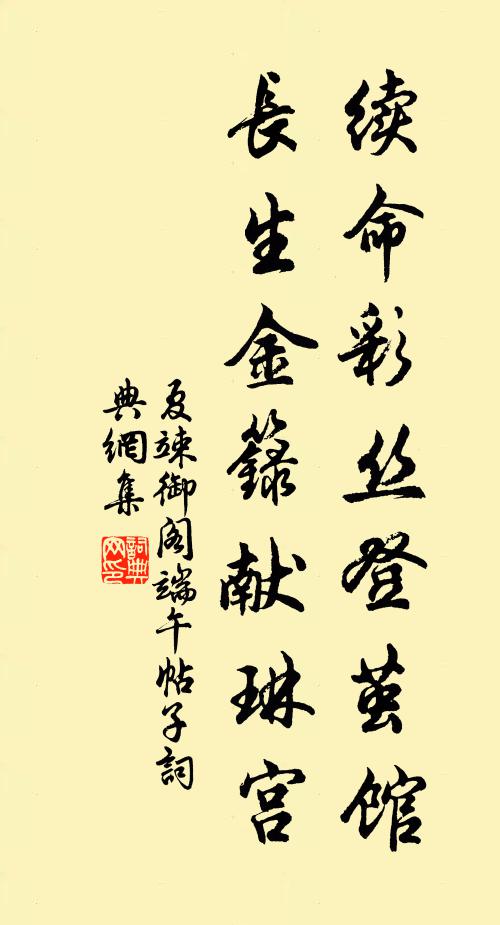 续命彩丝登茧馆
長生金籙献琳宫
夏竦御阁端午帖子詞
典網集
詞典网印